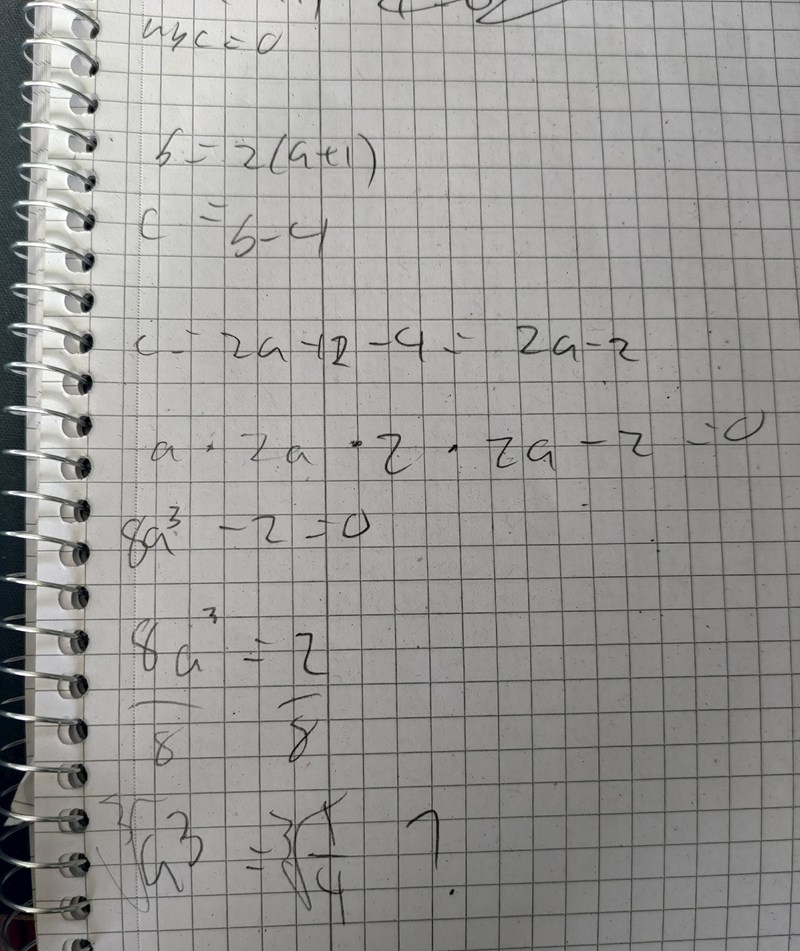 abc = 0
b = 2(a+1)
c = b-4
c = 2a+2-4 = 2a-2
a · 2a · 2 · 2a - 2 = 0
8a³ - 2 = 0
8a³/8 = 2/8
∛a³ = ∛1/4 ?